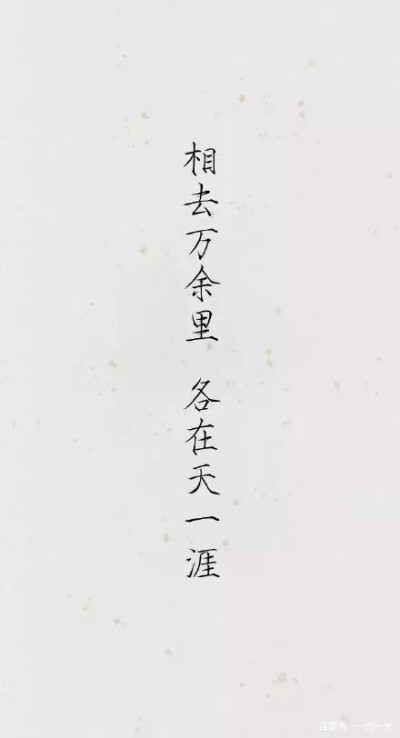 相去万余里 各在天一涯